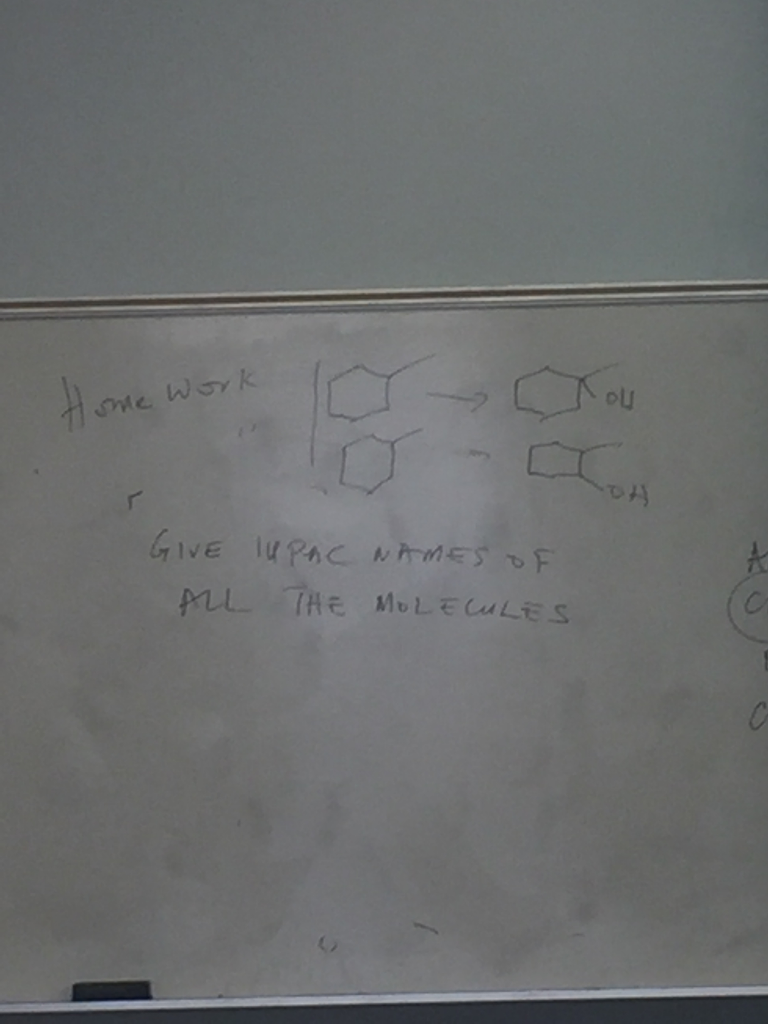 Home Work
OH
OH
GIVE IUPAC NAMES OF
ALL THE MOLECULES
A
C
C